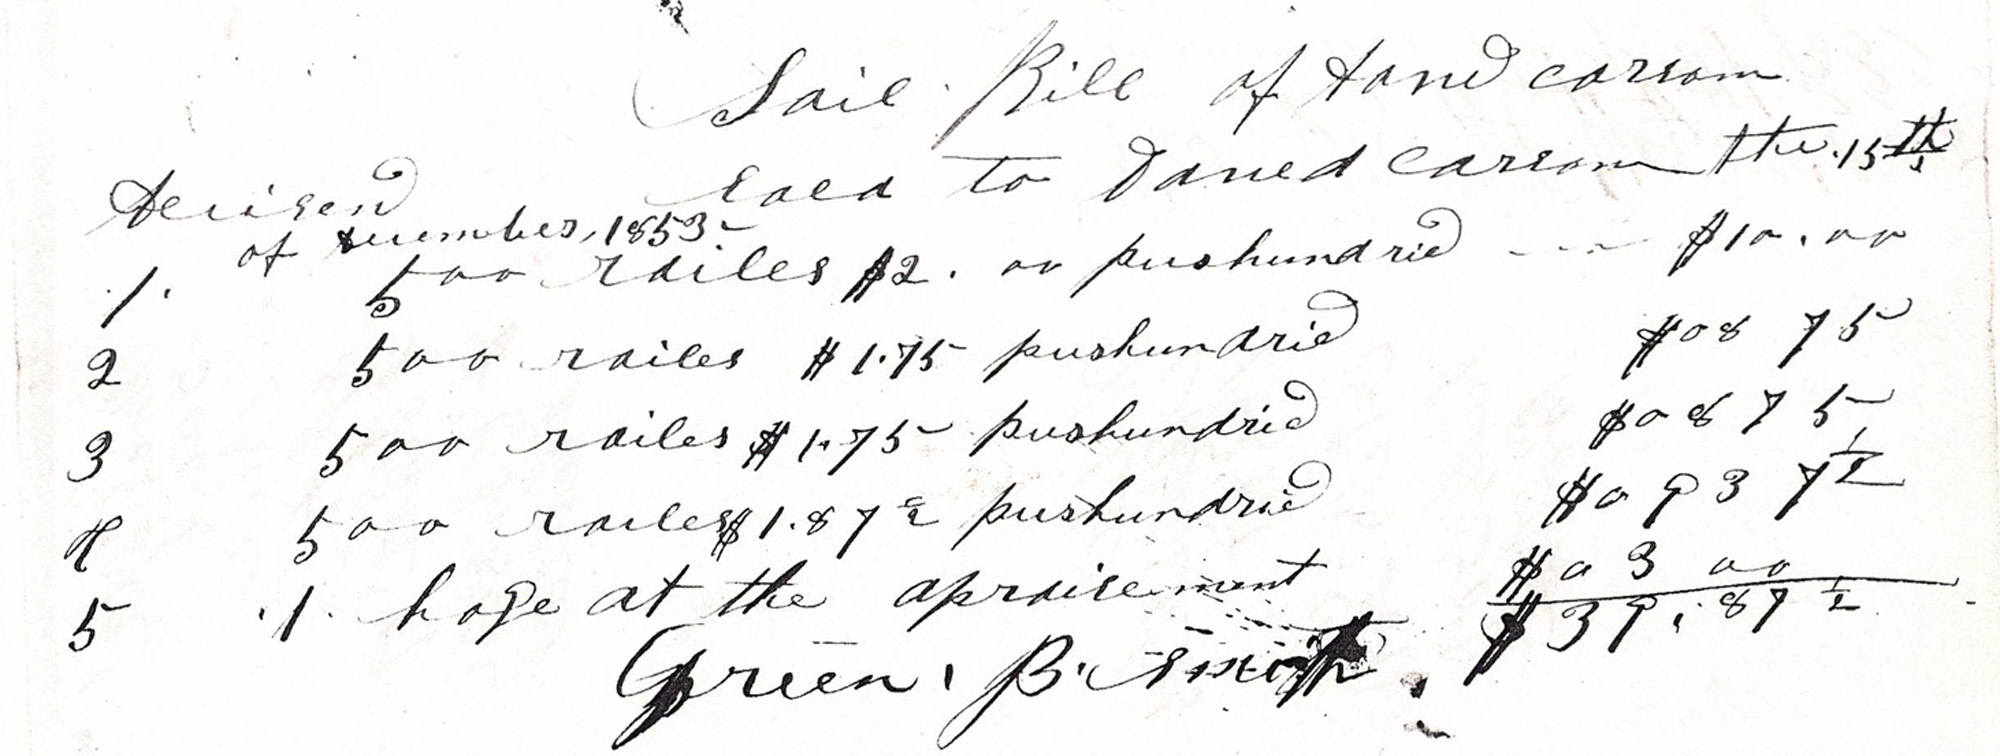 Sail Bill of Hand carsom
Decisend sold to David Carsom the 15th
of December, 1853
1. 500 railes $2.00 pushundrid --- $10.00
2 500 railes $1.75 pushundrid $08 75
3 500 railes $1.75 pushundrid $08 75
4 500 railes $1.87 ½ pushundrid $09 37 ½
5 .1. hoge at the apraisement $03 00
$39.87 ½
Green. B. Smith.